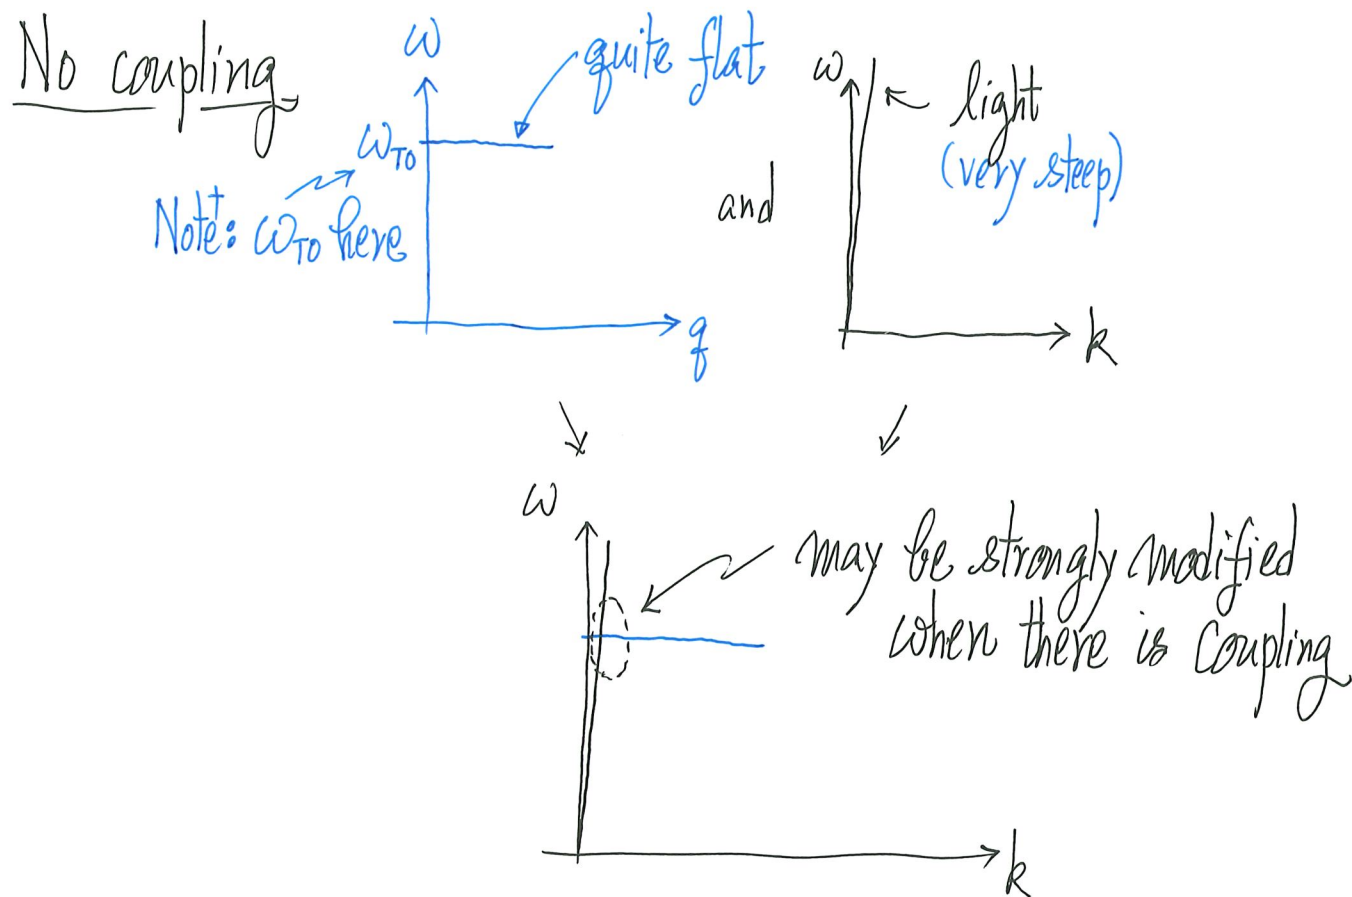 No coupling
ω
quite flat
ω_TO
Note†: ω_TO here
q
and
ω
light
(very steep)
k
ω
may be strongly modified
when there is coupling
k